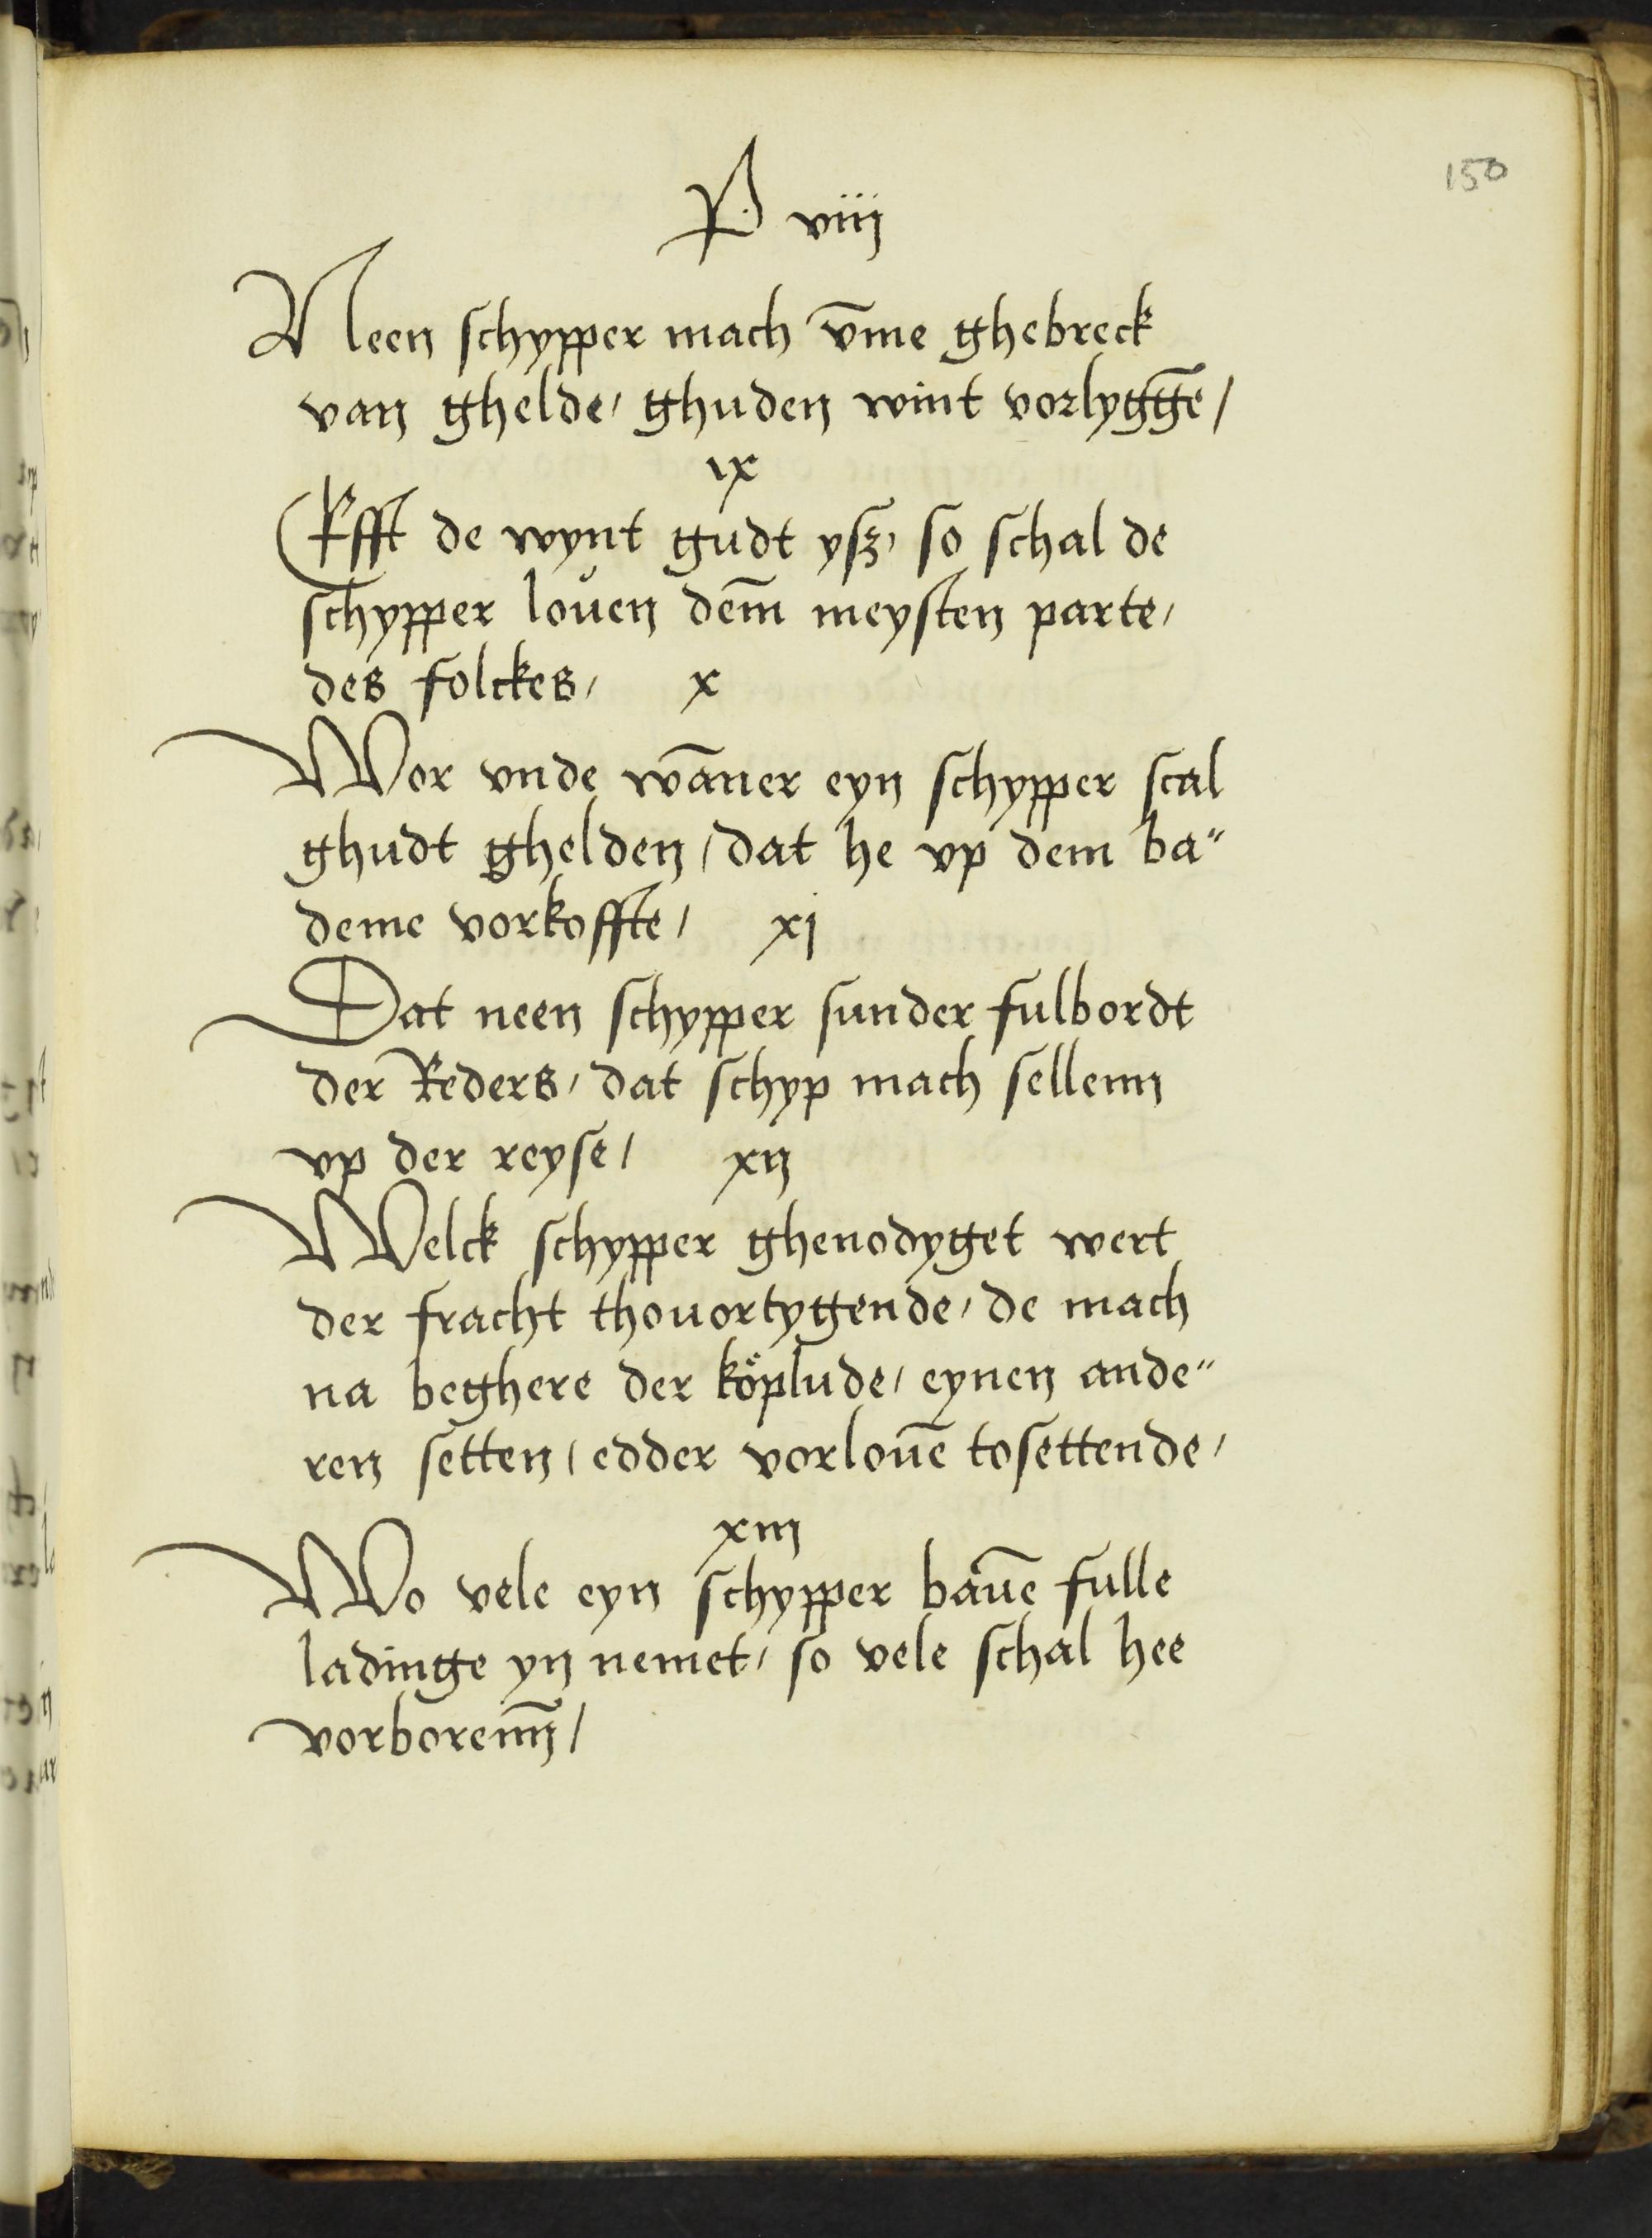 150
P viij
Neen schypper mach v̄me ghebreck
van ghelde / ghuden wint vorlyggē /
ix
Efft de wynt gudt ysz / so schal de
schypper louen dem̄ meysten parte /
des folckes / x
Wor vnde wāner eyn schypper scal
ghudt ghelden / dat he vp dem ba"
deme vorkoffte / xj
Dat neen schypper sunder fulbordt
der Reders / dat schyp mach sellenn
vp der reyse / xij
Welck schypper ghenodyget wert
der fracht thouortygende / de mach
na beghere der köplude / eynen ande"
ren setten / edder vorlouē tosettende /
xiij
Wo vele eyn schypper bauē fulle
ladinge yn nemet / so vele schal hee
vorborenn̄ /